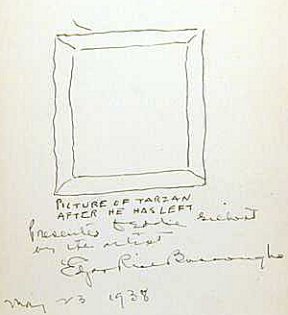 PICTURE OF TARZAN
AFTER HE HAS LEFT
Presented to Eddie Gilbert
by the artist
Edgar Rice Burroughs
May 23 1938